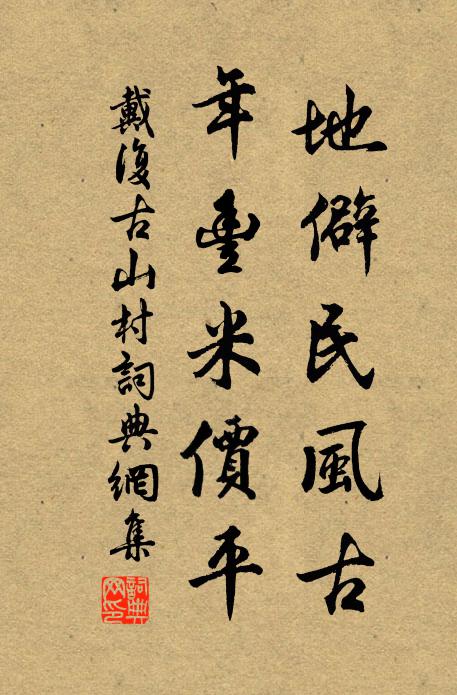 地僻民風古
年豐米價平
戴復古山村詞典網集
詞典网印